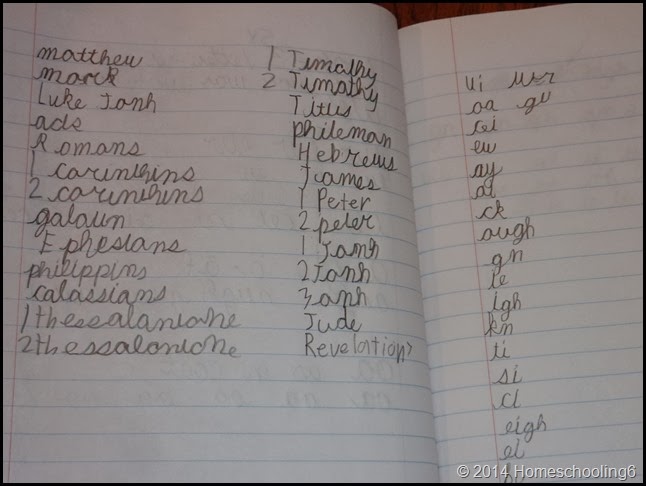 matthew
marck
Luke Janh
acts
Romans
1 carinthins
2 carinthins
galaun
Ephesians
philippins
calassians
1 thessalaniane
2 thessaloniane
1 Timathy
2 Timathy
Titus
phileman
Hebrews
James
1 Peter
2 peter
1 Janh
2 Janh
3 anh
Jude
Revelation
ui wr
oa gu
cei
ew
ay
ai
ck
ough
gn
ie
igh
kn
ti
si
ci
eigh
ei
© 2014 Homeschooling6